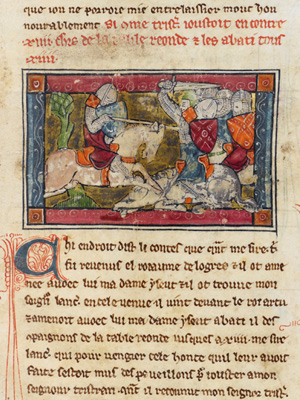 que ion ne porroie mie entrelaissier mout hon
nourablement Si ome trist' ioustoit encontre
xiiii chrs de la table reonde & les abati tous
xiiii.
Chi endroit dist li contes que qnt me sire t'
fu reuenus el roiaume de logres & il ot ame
nee auoec lui ma dame yseut & il ot trouue mon
seignr lanc en cele uenue il uint deuant le roi artu
& amenoit auoec lui ma dame yseut abati il des
compaignons de la table reonde iusques a xiiii me sire
lanc qui pour uengier cele honte qil leur auoit
faite sestoit mus des pour iouster a mon
seignour tristran qnt il reconnut mon seignr trist'